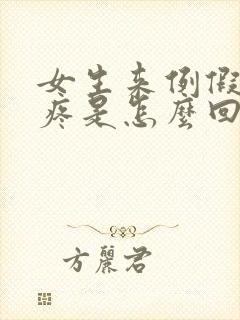 女生来例假
疼是怎麼回
方麗君